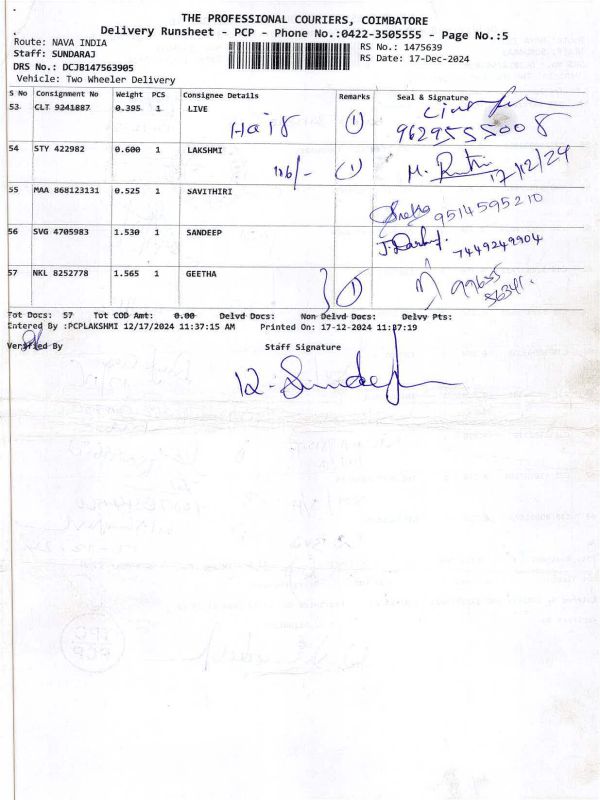 THE PROFESSIONAL COURIERS, COIMBATORE
Delivery Runsheet - PCP - Phone No.:0422-3505555 - Page No.:5
Route: NAVA INDIA
RS No.: 1475639
Staff: SUNDARAJ
RS Date: 17-Dec-2024
DRS No.: DCJB147563905
Vehicle: Two Wheeler Delivery
S No Consignment No Weight PCS Consignee Details Remarks Seal & Signature
53 CLT 9241887 0.395 1 LIVE
Hair 1
9629555008
54 STY 422982 0.600 1 LAKSHMI
106/- 1 M. 17/12/24
55 MAA 868123131 0.525 1 SAVITHIRI
9514595210
56 SVG 4705983 1.530 1 SANDEEP
7449249904
57 NKL 8252778 1.565 1 GEETHA
1
Tot Docs: 57 Tot COD Amt: 0.00 Delvd Docs: Non Delvd Docs: Delvy Pts:
Entered By :PCPLAKSHMI 12/17/2024 11:37:15 AM Printed On: 17-12-2024 11:37:19
Verified By Staff Signature